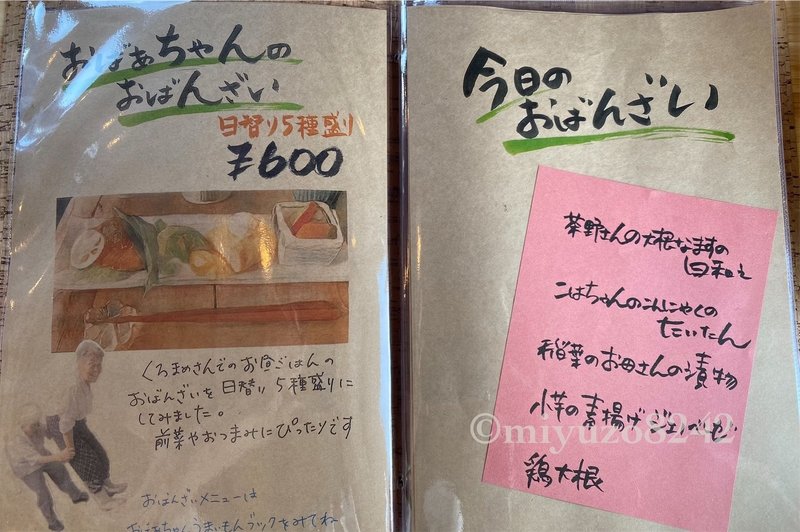 おばぁちゃんの
おばんざい
日替り5種盛り
¥600
くろまめさんでのお昼ごはんの
おばんざいを日替り5種盛りに
してみました。
前菜やおつまみにぴったりです
おばんざいメニューは
今日の
おばんざい
茶野さんの大根なますの
白和え
こはちゃんのこんにゃくの
たいたん
稲葉のお母さんの漬物
小芋の素揚げ
鶏大根
©miyuzo8242